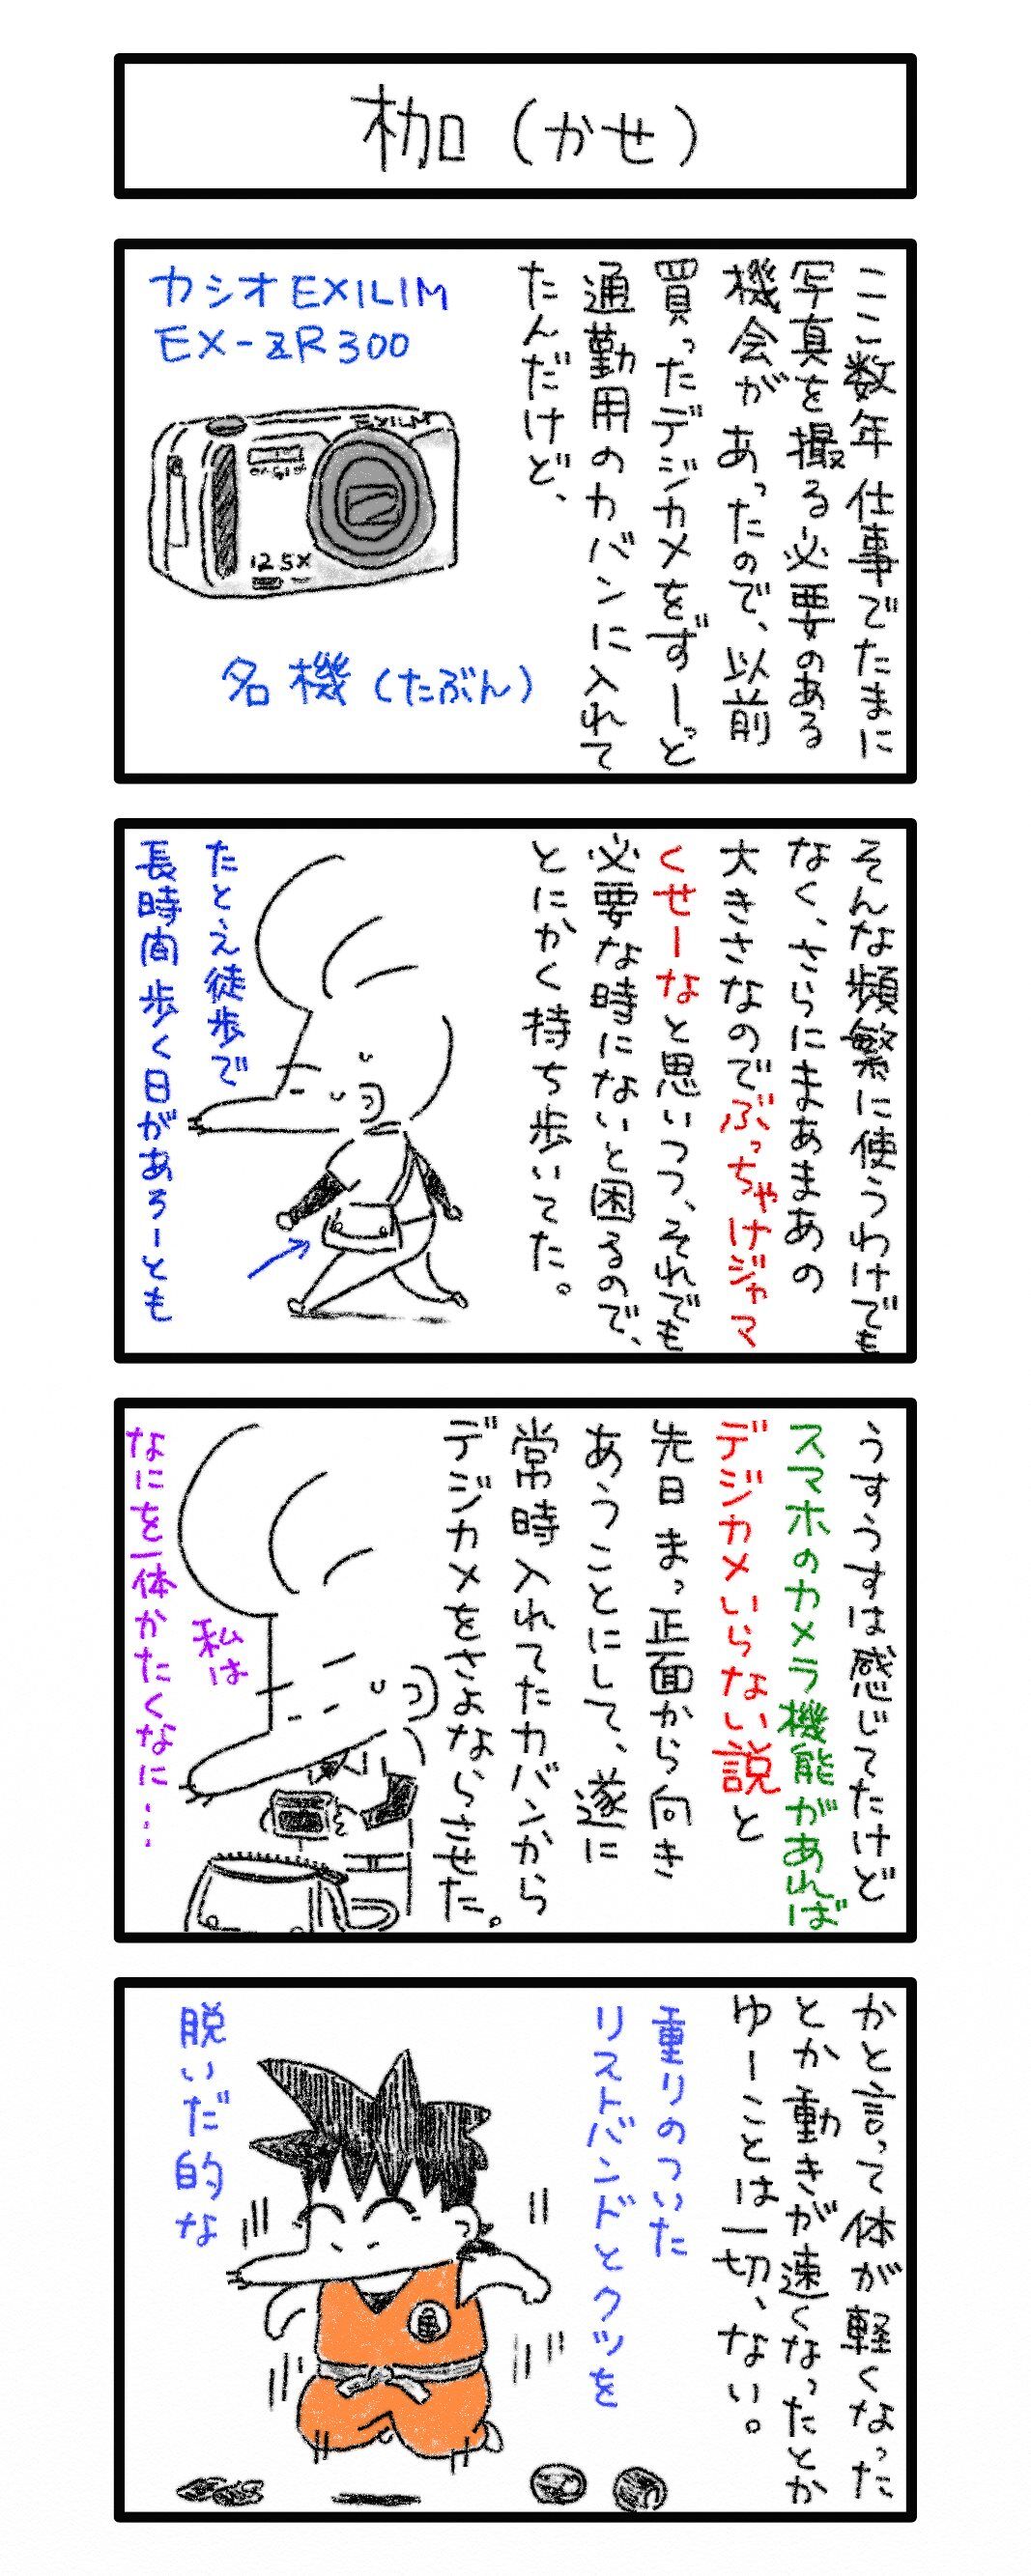 枷（かせ）
ここ数年仕事でたまに
写真を撮る必要のある
機会があったので、以前
買ったデジカメをずーっと
通勤用のカバンに入れて
たんだけど、
カシオEXILIM
EX-ZR300
EXILIM
12.5X
名機（たぶん）
そんな頻繁に使うわけでも
なく、さらにまあまあの
大きさなのでぶっちゃけジャマ
くせーなと思いつつ、それでも
必要な時にないと困るので、
とにかく持ち歩いてた。
たとえ徒歩で
長時間歩く日があろーとも
うすうすは感じてたけど
スマホのカメラ機能があれば
デジカメいらない説と
先日まっ正面から向き
あうことにして、遂に
常時入れてたカバンから
デジカメをさよならさせた。
私は
なにを一体かたくなに…
かと言って体が軽くなった
とか動きが速くなったとか
ゆーことは一切、ない。
重りのついた
リストバンドとクツを
脱いだ的な
亀